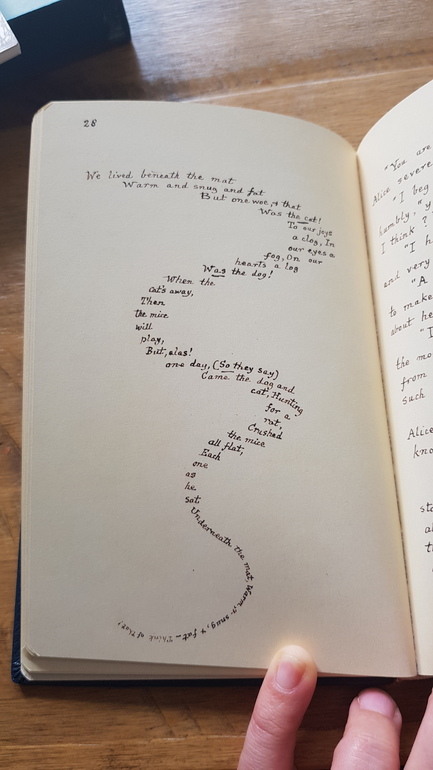 28
We lived beneath the mat
Warm and snug and fat
But one woe, & that
Was the cat!
To our joys
a clog, In
our eyes a
fog, On our
hearts a log
Was the dog!
When the
cat's away,
Then
the mice
will
play,
But, alas!
one day, (So they say)
Came the dog and
cat, Hunting
for a
rat,
Crushed
the mice
all flat,
Each
one
as
he
sat
Underneath the mat, Warm, & snug, & fat - Think of that!
"You are
Alice severe
"I beg
humbly, "y
I think ?
"I h
and very
"A
to make
about he
"I
the mo
from
such
Alice
kno
sto
a
t